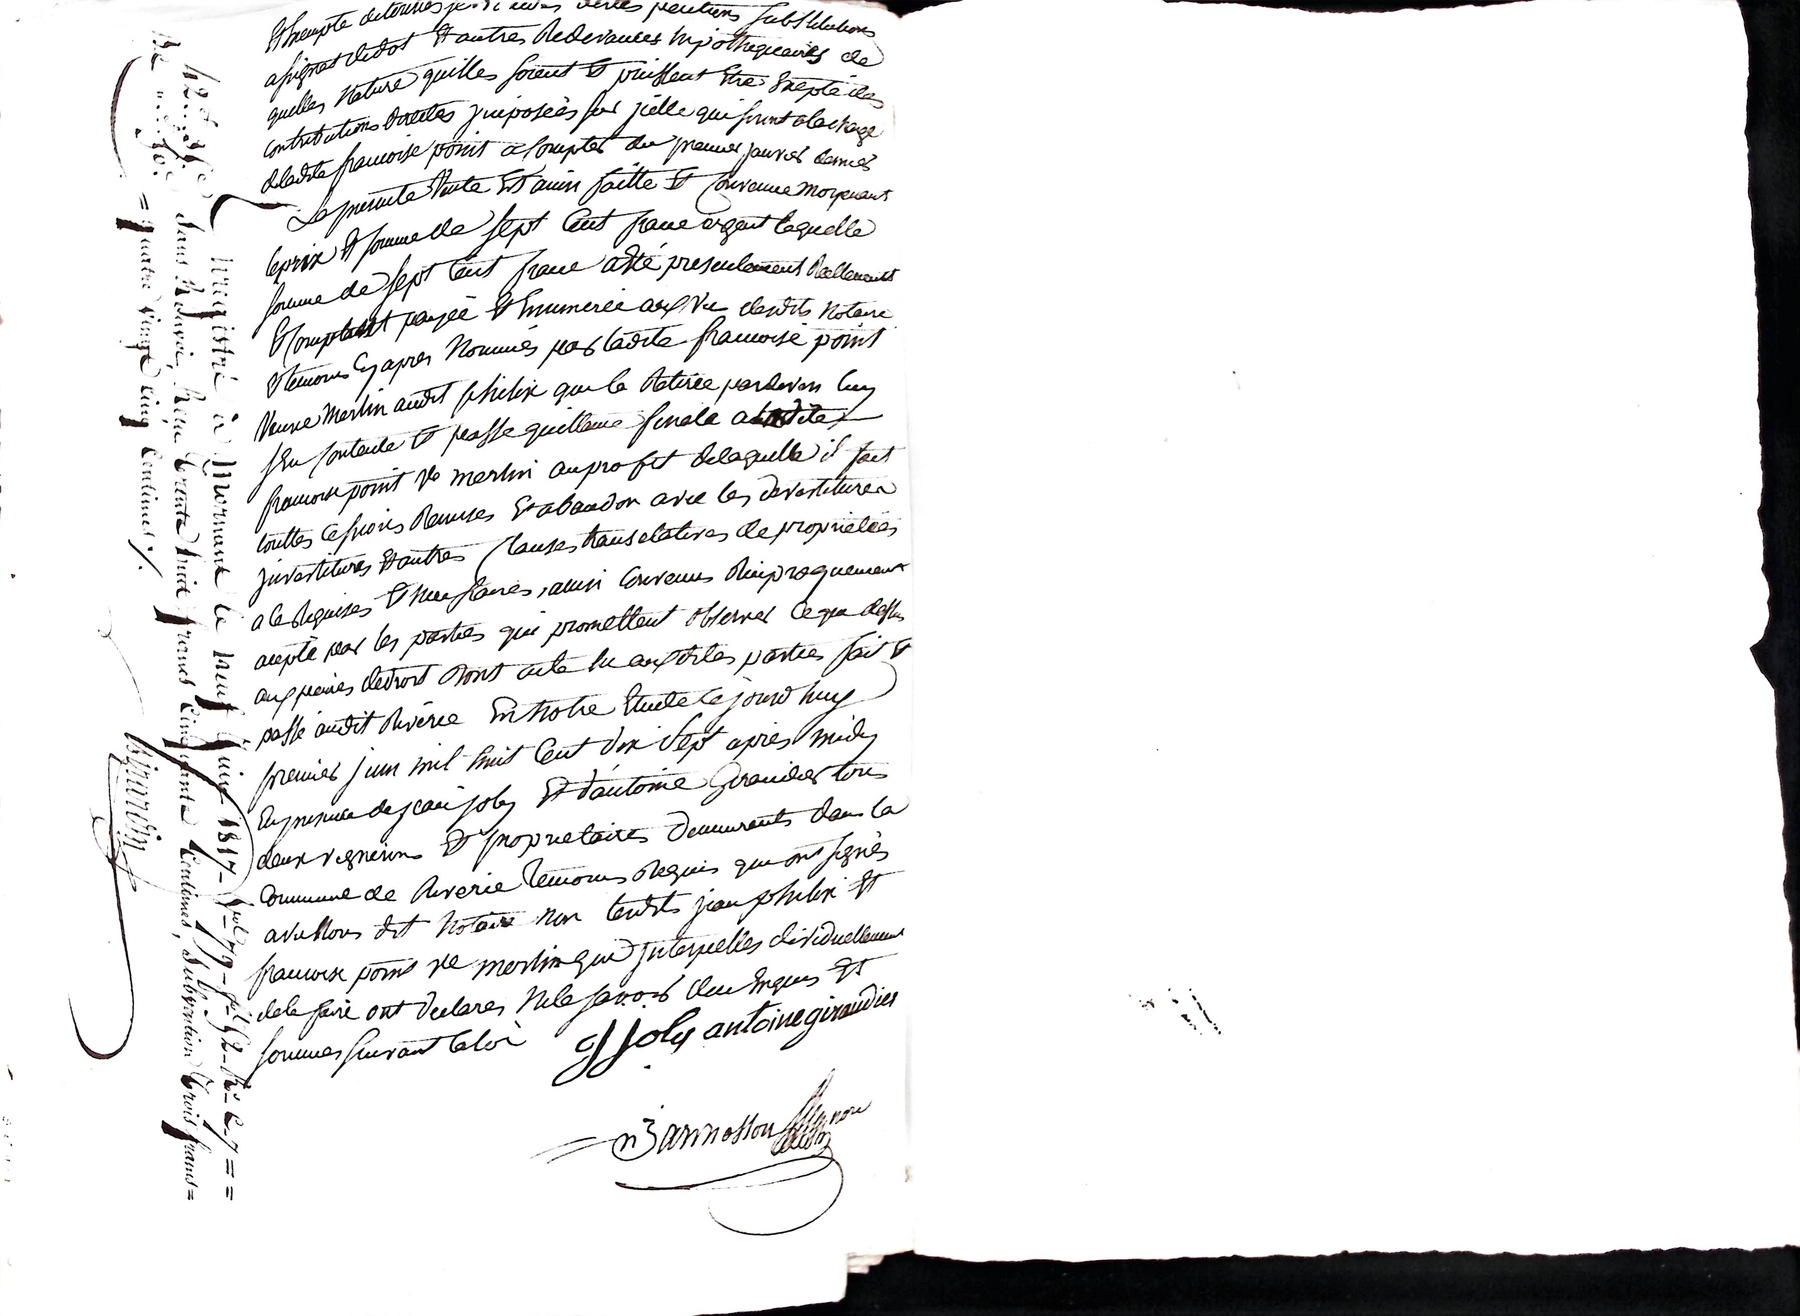 Et Exempte de touttes
substitutions
assignat de dot Et autres Redevances hipothequaires de
quelles Nature quilles soient Et puissent Etre Exepté des
contributions directes jmposées sur jcelle qui seront a la charge
de ladite francoise point a Compter du premier janvier dernier
La presente Vente Est ainsi faitte Et Convenue moyenant
le prix Et somme de sept Cent franc argent laquelle
somme de sept Cent franc a été presentement Reellement
Et Comptant payée Et Enumerée aux Vu desdits Notaire
Et temoins Cy apres Nommés par ladite francoise point
Veuve Merlin audit philix que la Retirée pardevers luy
s'En Contente Et passe quittance finale a ladite
francoise point Ve merlin au profit delaquelle il fait
touttes Cessions Remises Et abandon avec les devestitures
jnvestitures Et autres Clauses translatives de propriétées
a le Requises Et necessaires, ainsi Convenus Reciproquement
acepté par les parties qui promettent observer Ce que dessus
aux peines de droit dont acte lu auxdites parties fait Et
passé audit Riverie En Notre Etude Ce jourd'huy
premier juin mil huit Cent dix sept apres midy
En presence de jean joly Et d'antoine Giraudier tous
deux vignerons Et proprietaires demeurants dans la
Commune de Riverie temoins Requis qui ont signés
avec Nous dit Notaire non lesdits jean philix Et
francoise point Ve merlin qui jnterpellés dividuellement
de le faire ont declarés Ne le savoir de ce Enquis Et
sommes suivant la loi
J joly antoine giraudier
Bannosson
Enregistré à Mornant le neuf Juin 1817 - fol 79 - Ro - C 7 =
Reçu trente huit francs Cinquante Centimes, Subvention trois francs =
= quatre Vingt Cinq Centimes ./.